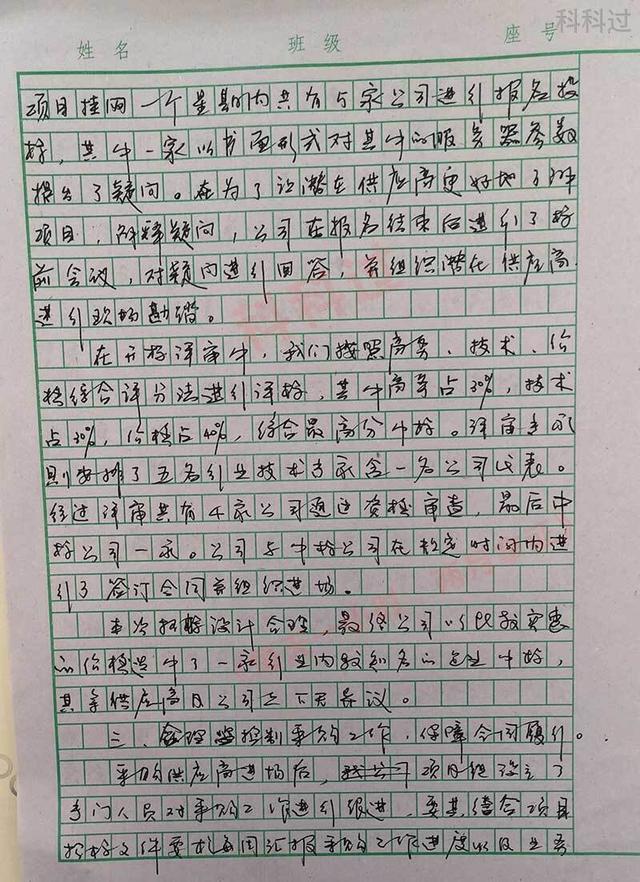 科科过
姓名 班级 座号
项目挂网一个星期内共有5家公司进行报名投
标，其中一家以书面形式对其中的服务器参数
提出了疑问。在为了让潜在供应商更好地了解
项目，解释疑问，公司在报名结束后进行了标
前会议，对疑问进行回答，并组织潜在供应商
进行现场勘踏。
在开标评审中，我们按照商务、技术、价
格综合评分法进行评标，其中商务占30%，技术
占30%，价格占40%，综合最高分中标。评审专家
则安排了五名行业技术专家含一名公司代表。
经过评审共有4家公司通过资格审查，最后中
标公司一家。公司与中标公司在约定时间内进
行了签订合同并组织进场。
本次招标设计合理，最终公司以比较实惠
的价格选中了一家行业内较知名的企业中标，
其余供应商及公司上下无异议。
三、控制采购工作，保障合同履行。
采购供应商进场后，项目组设立了
专门人员对采购工作进行跟进，要其结合项目
招标文件要求每周汇报采购工作进度以及业务